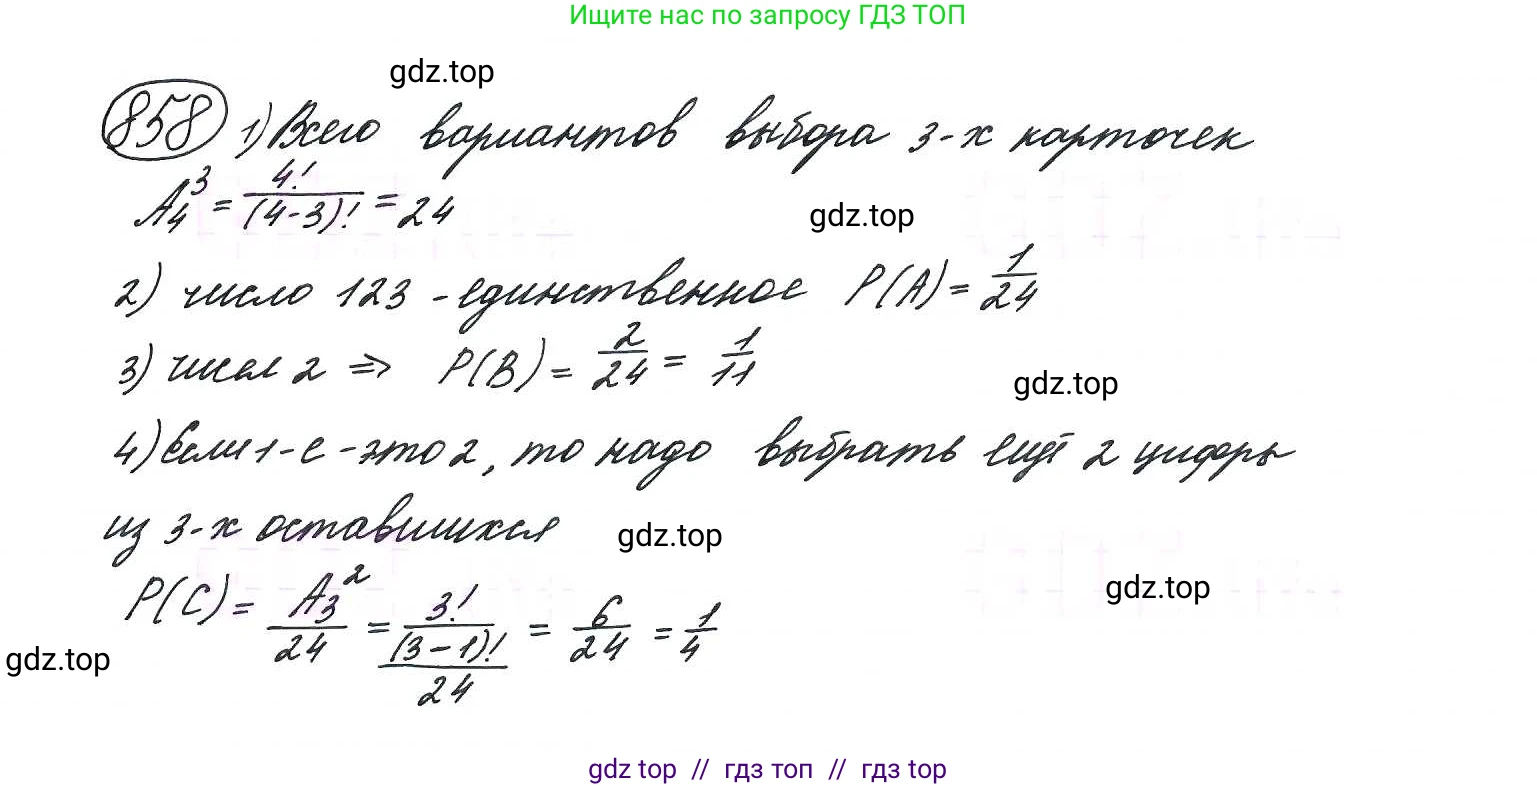 Ищите нас по запросу ГДЗ ТОП
gdz.top
858 1) Всего вариантов выбора 3-х карточек
A₄³ = 4!/(4-3)! = 24
gdz.top
2) число 123 - единственное P(A) = 1/24
3) чисел 2 ⇒ P(B) = 2/24 = 1/11
gdz.top
4) Если 1-е - это 2, то надо выбрать ещё 2 цифры
из 3-х оставшихся
gdz.top
P(C) = A₃²/24 = 3!/(3-1)!/24 = 6/24 = 1/4
gdz.top
gdz.top
gdz top // гдз топ // гдз top